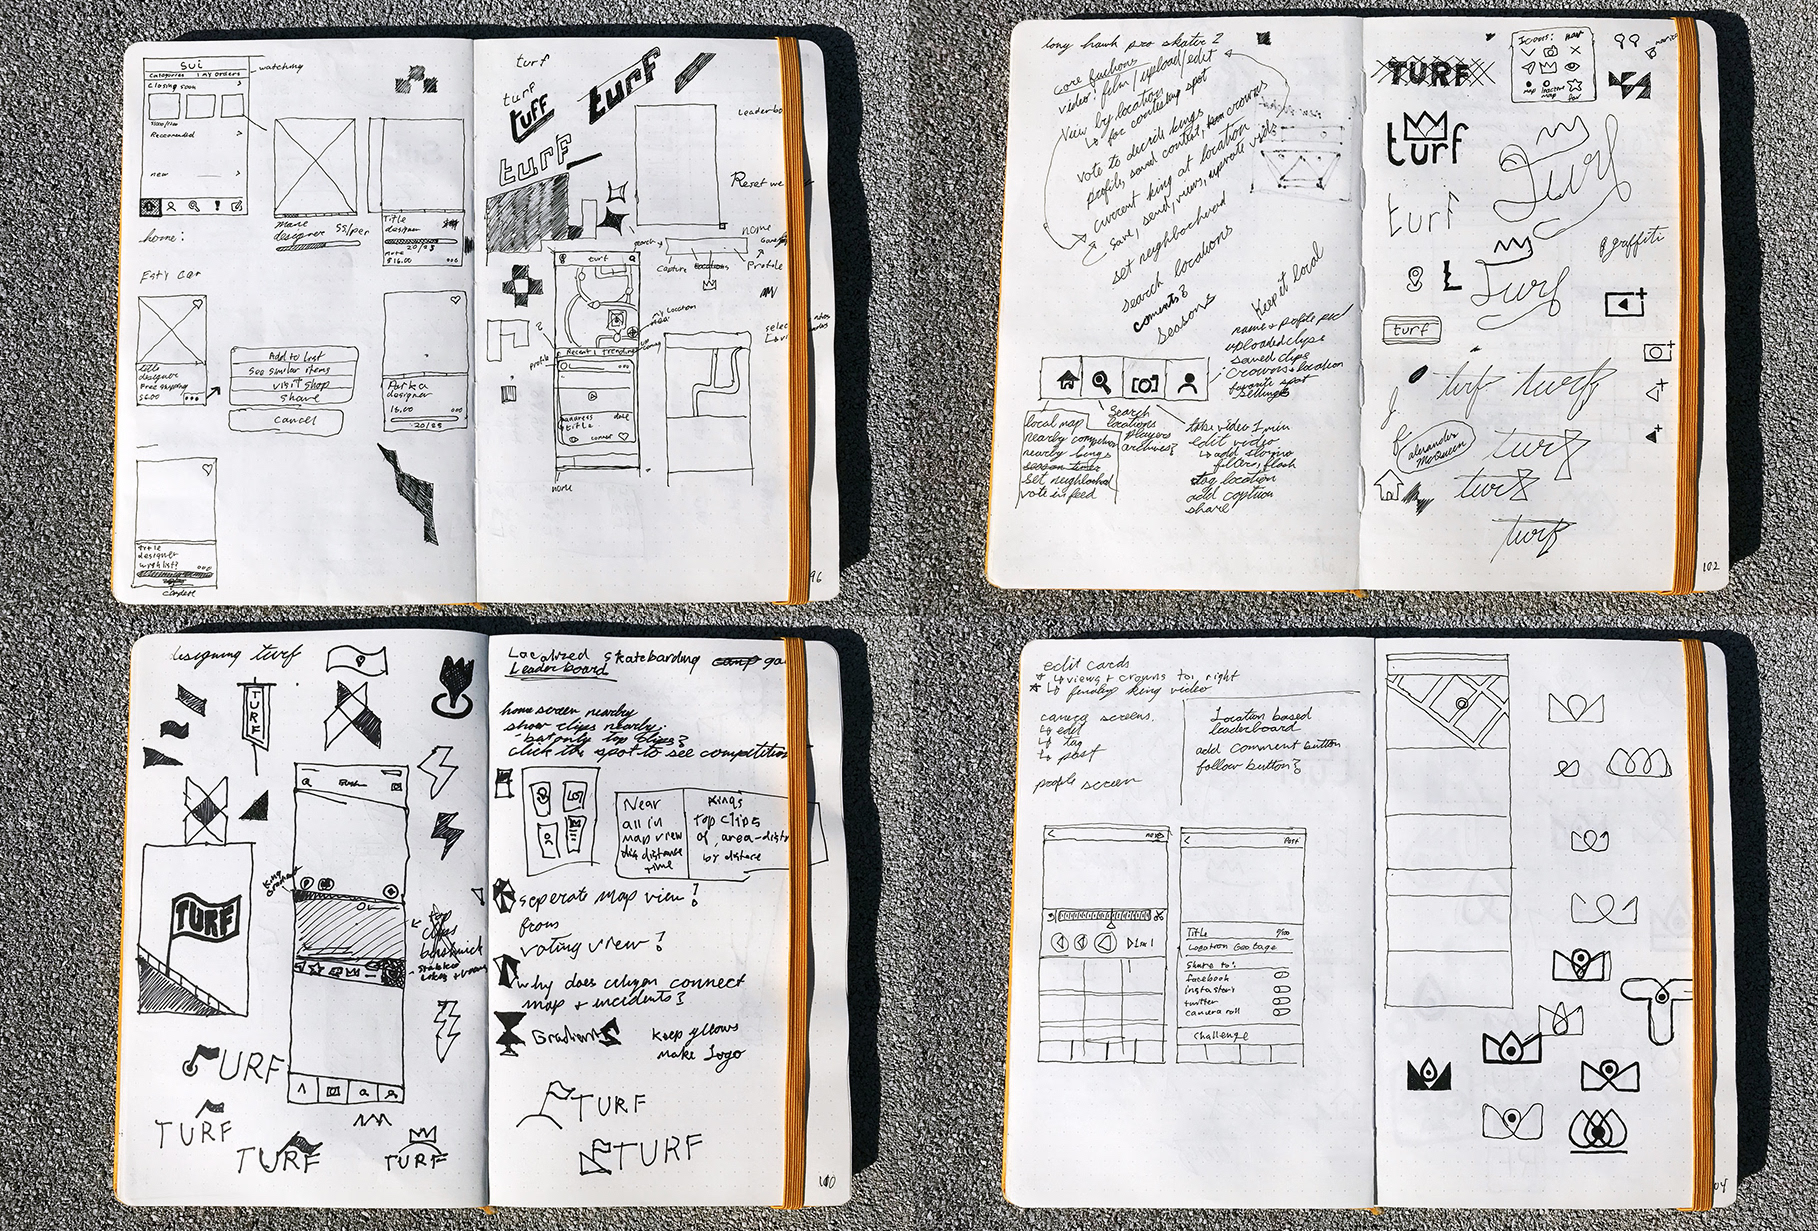 sui
watching
Categories | my orders
Closing soon
Recommended
new
home:
name
designer 55/per
Title
designer
20/25
$16.00
title
designer
Free shipping
$6.00
Add to list
See similar items
visit shop
share
cancel
Parka
designer
18.00
20/25
title
designer
wishlist?
turf
turf
turf
tuff
turf
Leaderbo
Reset we
search
name
capture
locations
Profile
turf
my location
Recent | Trending
profile
address date
title
name
96
tony hawk pro skater 2
core functions
video: film/upload/edit
view by location
↳ for contesting spot
vote to decide kings
profile, saved content, crowns
current king at location
save, send, views, upvote vids
set neighborhood
search locations
comments?
seasons
Keep it local
name + profile pic
uploaded clips
saved clips
crowns + location
favorite spot
settings
local map
nearby
nearby kings
season timer
set neighborhood
vote in feed
Search
locations
players
archives?
take video 1 min
edit video
↳ add slowmo
filters, flash
tag location
add caption
share
TURF
Icons: nav
map
inactive
map
fav
turf
Turf
turf
Turf
graffiti
turf
turf turf
alexander
McQueen
turf
turf
turf
102
designing turf
TURF
TURF
top
clips
TURF
TURF
TURF
TURF
Localized skateboarding camp ga
Leaderboard
home screen nearby
show clips nearby:
- but only top clips?
click the spot to see competition
Near
all in
map view
distance
time
Kings
top clips
of, area-dist
by distance
seperate map view?
from
voting view?
why does citizen connect
map + incidents?
Gradients
keep yellows
make logo
TURF
TURF
100
edit cards
↳ views + crowns top right
↳ king video
camera screens
↳ edit
↳ tag
↳ post
profile screen
Location based
leaderboard
add comment button
follow button?
next
Post
Title
Location Geotag
Share to:
facebook
instastori
twitter
camera roll
Challenge
04